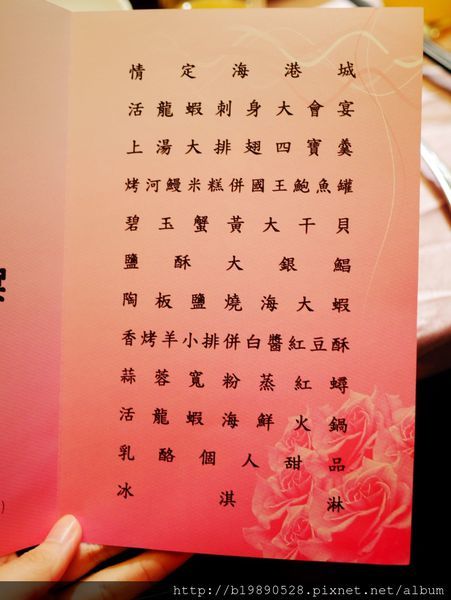 情定海港城
活龍蝦刺身大會宴
上湯大排翅四寶羹
烤河鰻米糕併國王鮑魚罐
碧玉蟹黃大干貝
鹽酥大銀鯧
陶板鹽燒海大蝦
香烤羊小排併白醬紅豆酥
蒜蓉寬粉蒸紅蟳
活龍蝦海鮮火鍋
乳酪個人甜品
冰淇淋
http://b19890528.pixnet.net/album